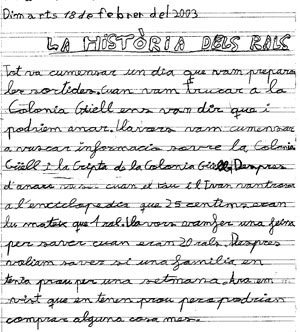 Dimarts 18 de febrer del 2003
LA HISTÒRIA DELS RALS
Tot va cumensar un dia que vam prepara
les sortides, cuan vam trucar a la
Colonia Güell ens van dir que i
podriem anar. Llavors vam cumensar
a vuscar informacio sovre la Colonia
Güell i la Cripta de la Colonia Güell. Despres
d'anar va ser cuan el teu i l'Ivan van trovar
a l'enciclopedia que 25 centims eran
lu mateix que 1 ral. Llavors vam fer una feina
per saver cuan eran 20 rals. Despres
voliam saver si una familia en
tenia prou per una setmana. Ara em
vist que en tenen prou pero podrian
comprar alguna cosa mes.